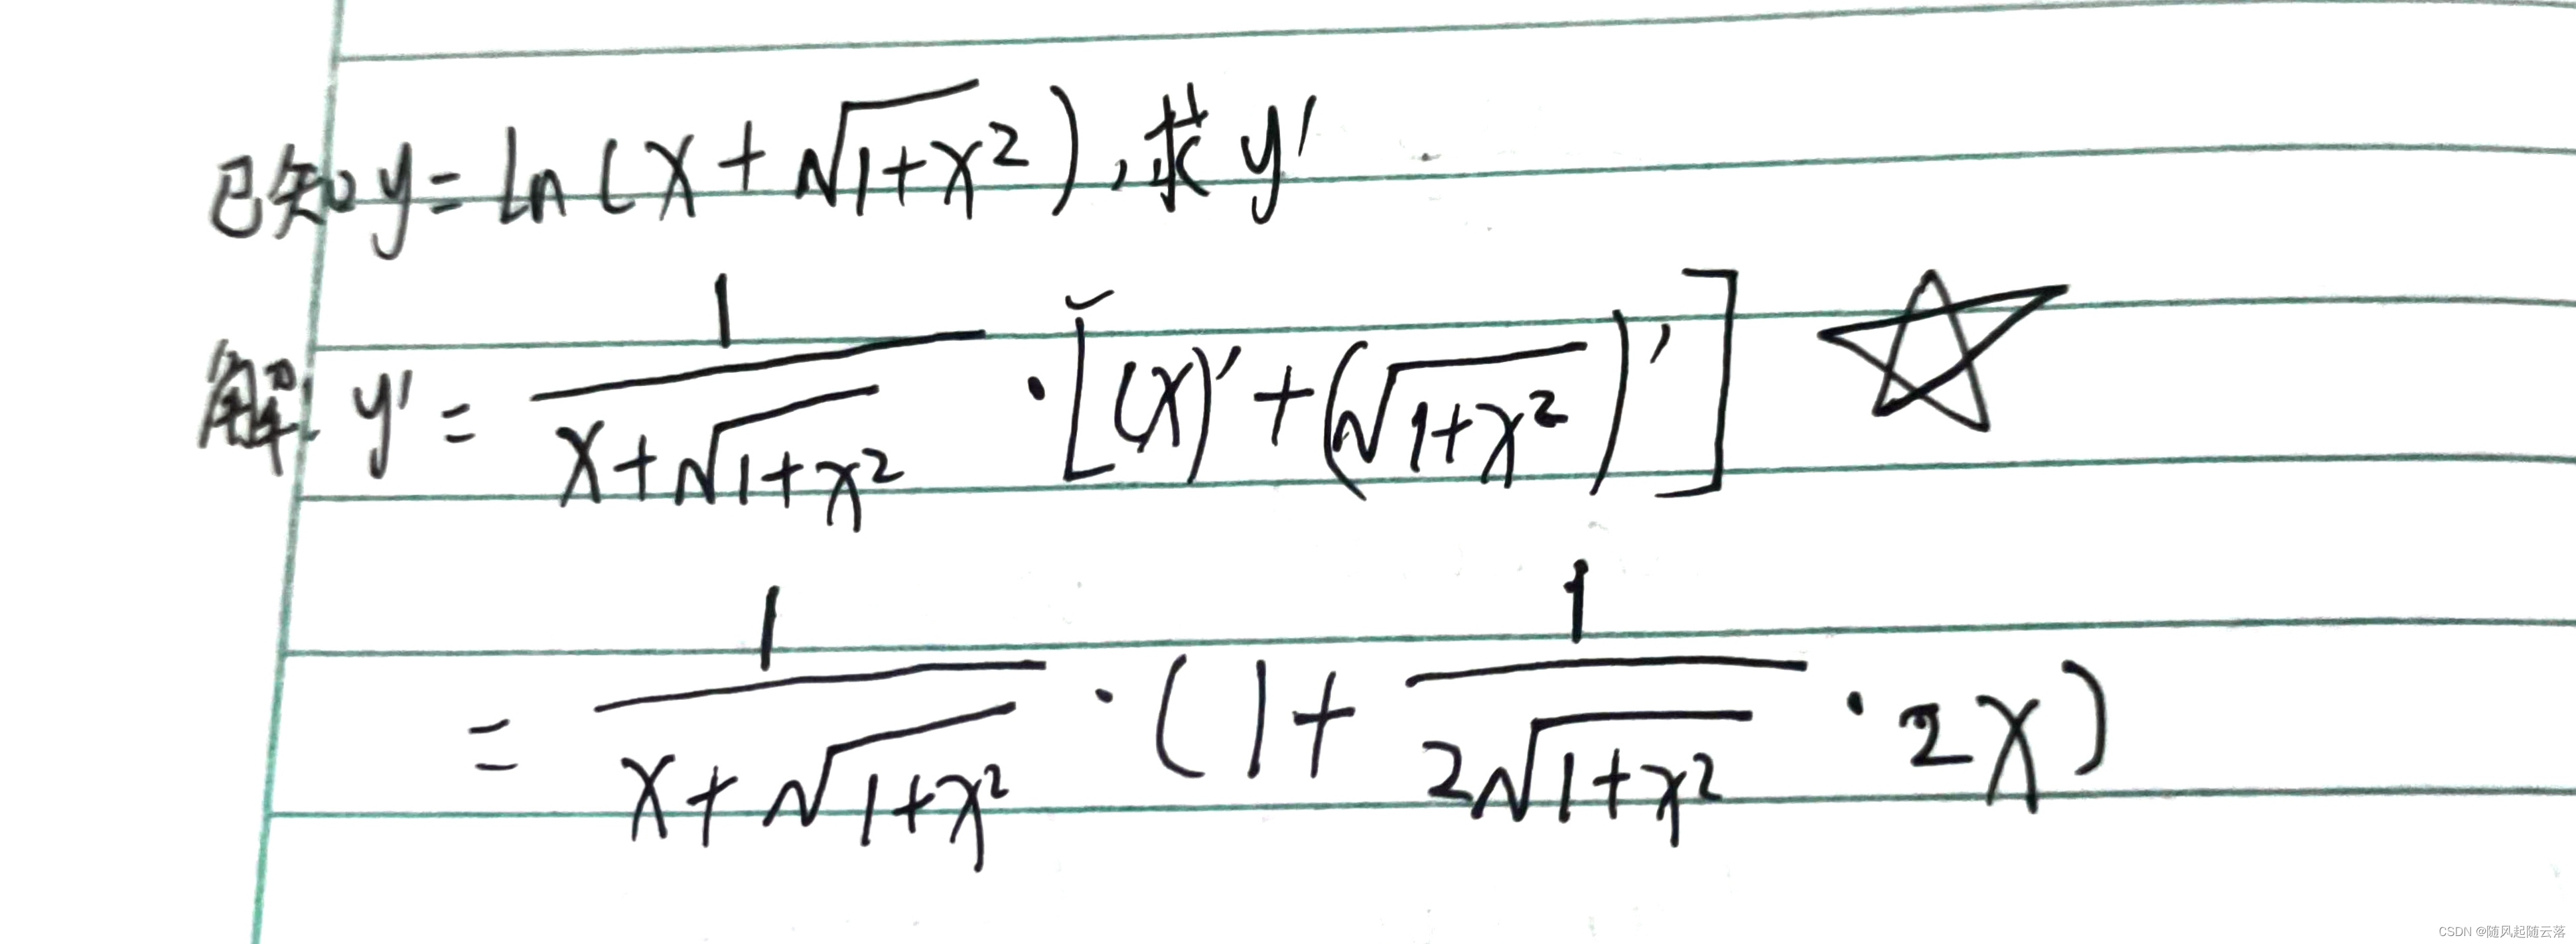 已知 y = ln(x + √(1+x²)), 求 y'
解: y' = 1/(x+√(1+x²)) · [(x)' + (√(1+x²))']
= 1/(x+√(1+x²)) · (1 + 1/(2√(1+x²)) · 2x)
CSDN @随风起随云落